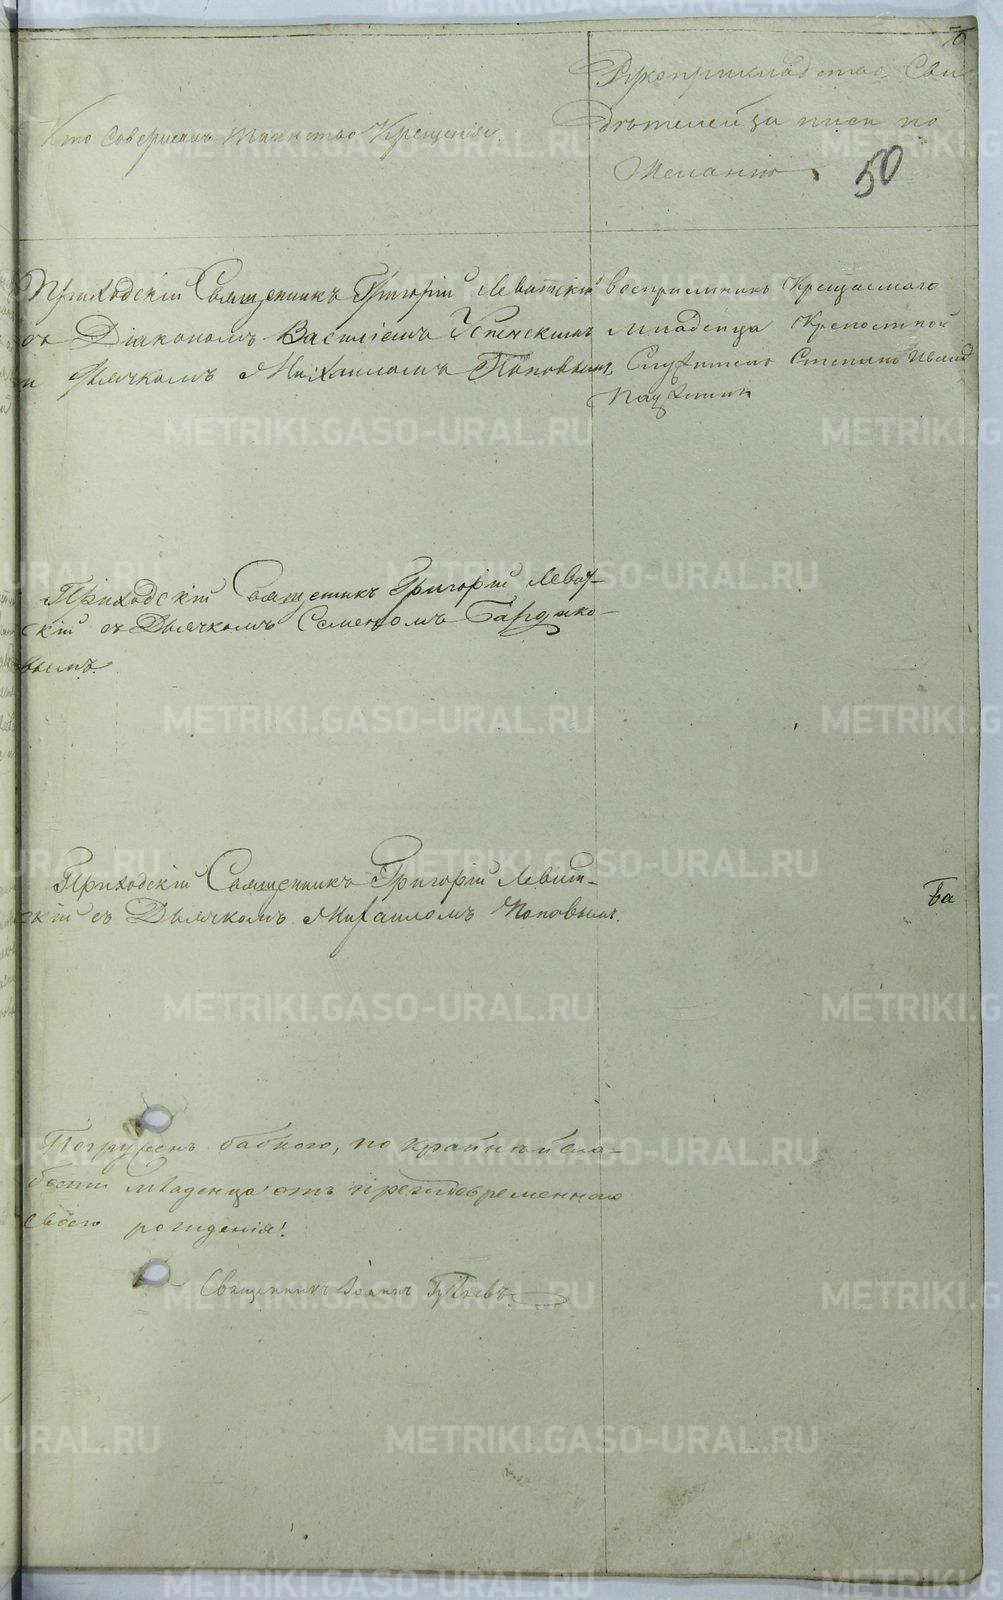 Кто совершалъ таинство крещенія.
Рукоприкладство сви
дѣтелей записи по
желанію.
50
Приходскій Священникъ Григорій Левитскій
съ Діакономъ Василіемъ Успенскимъ
и Дьячкомъ Михаиломъ Поповымъ,
Воспріемникъ Крещаемого
младенца Крепостной
Служитель Степанъ
Приходскій Священникъ Григорій Левит-
скій съ Дьячкомъ Семеномъ
вымъ.
Приходскій Священникъ Григорій Левит-
скій съ Дьячкомъ Михаиломъ Поповымъ.
Погруженъ бабкою, по крайнѣй сла-
бости младенца отъ преждевременнаго
своего рожденія!
Священникъ Іоаннъ
METRIKI.GASO-URAL.RU